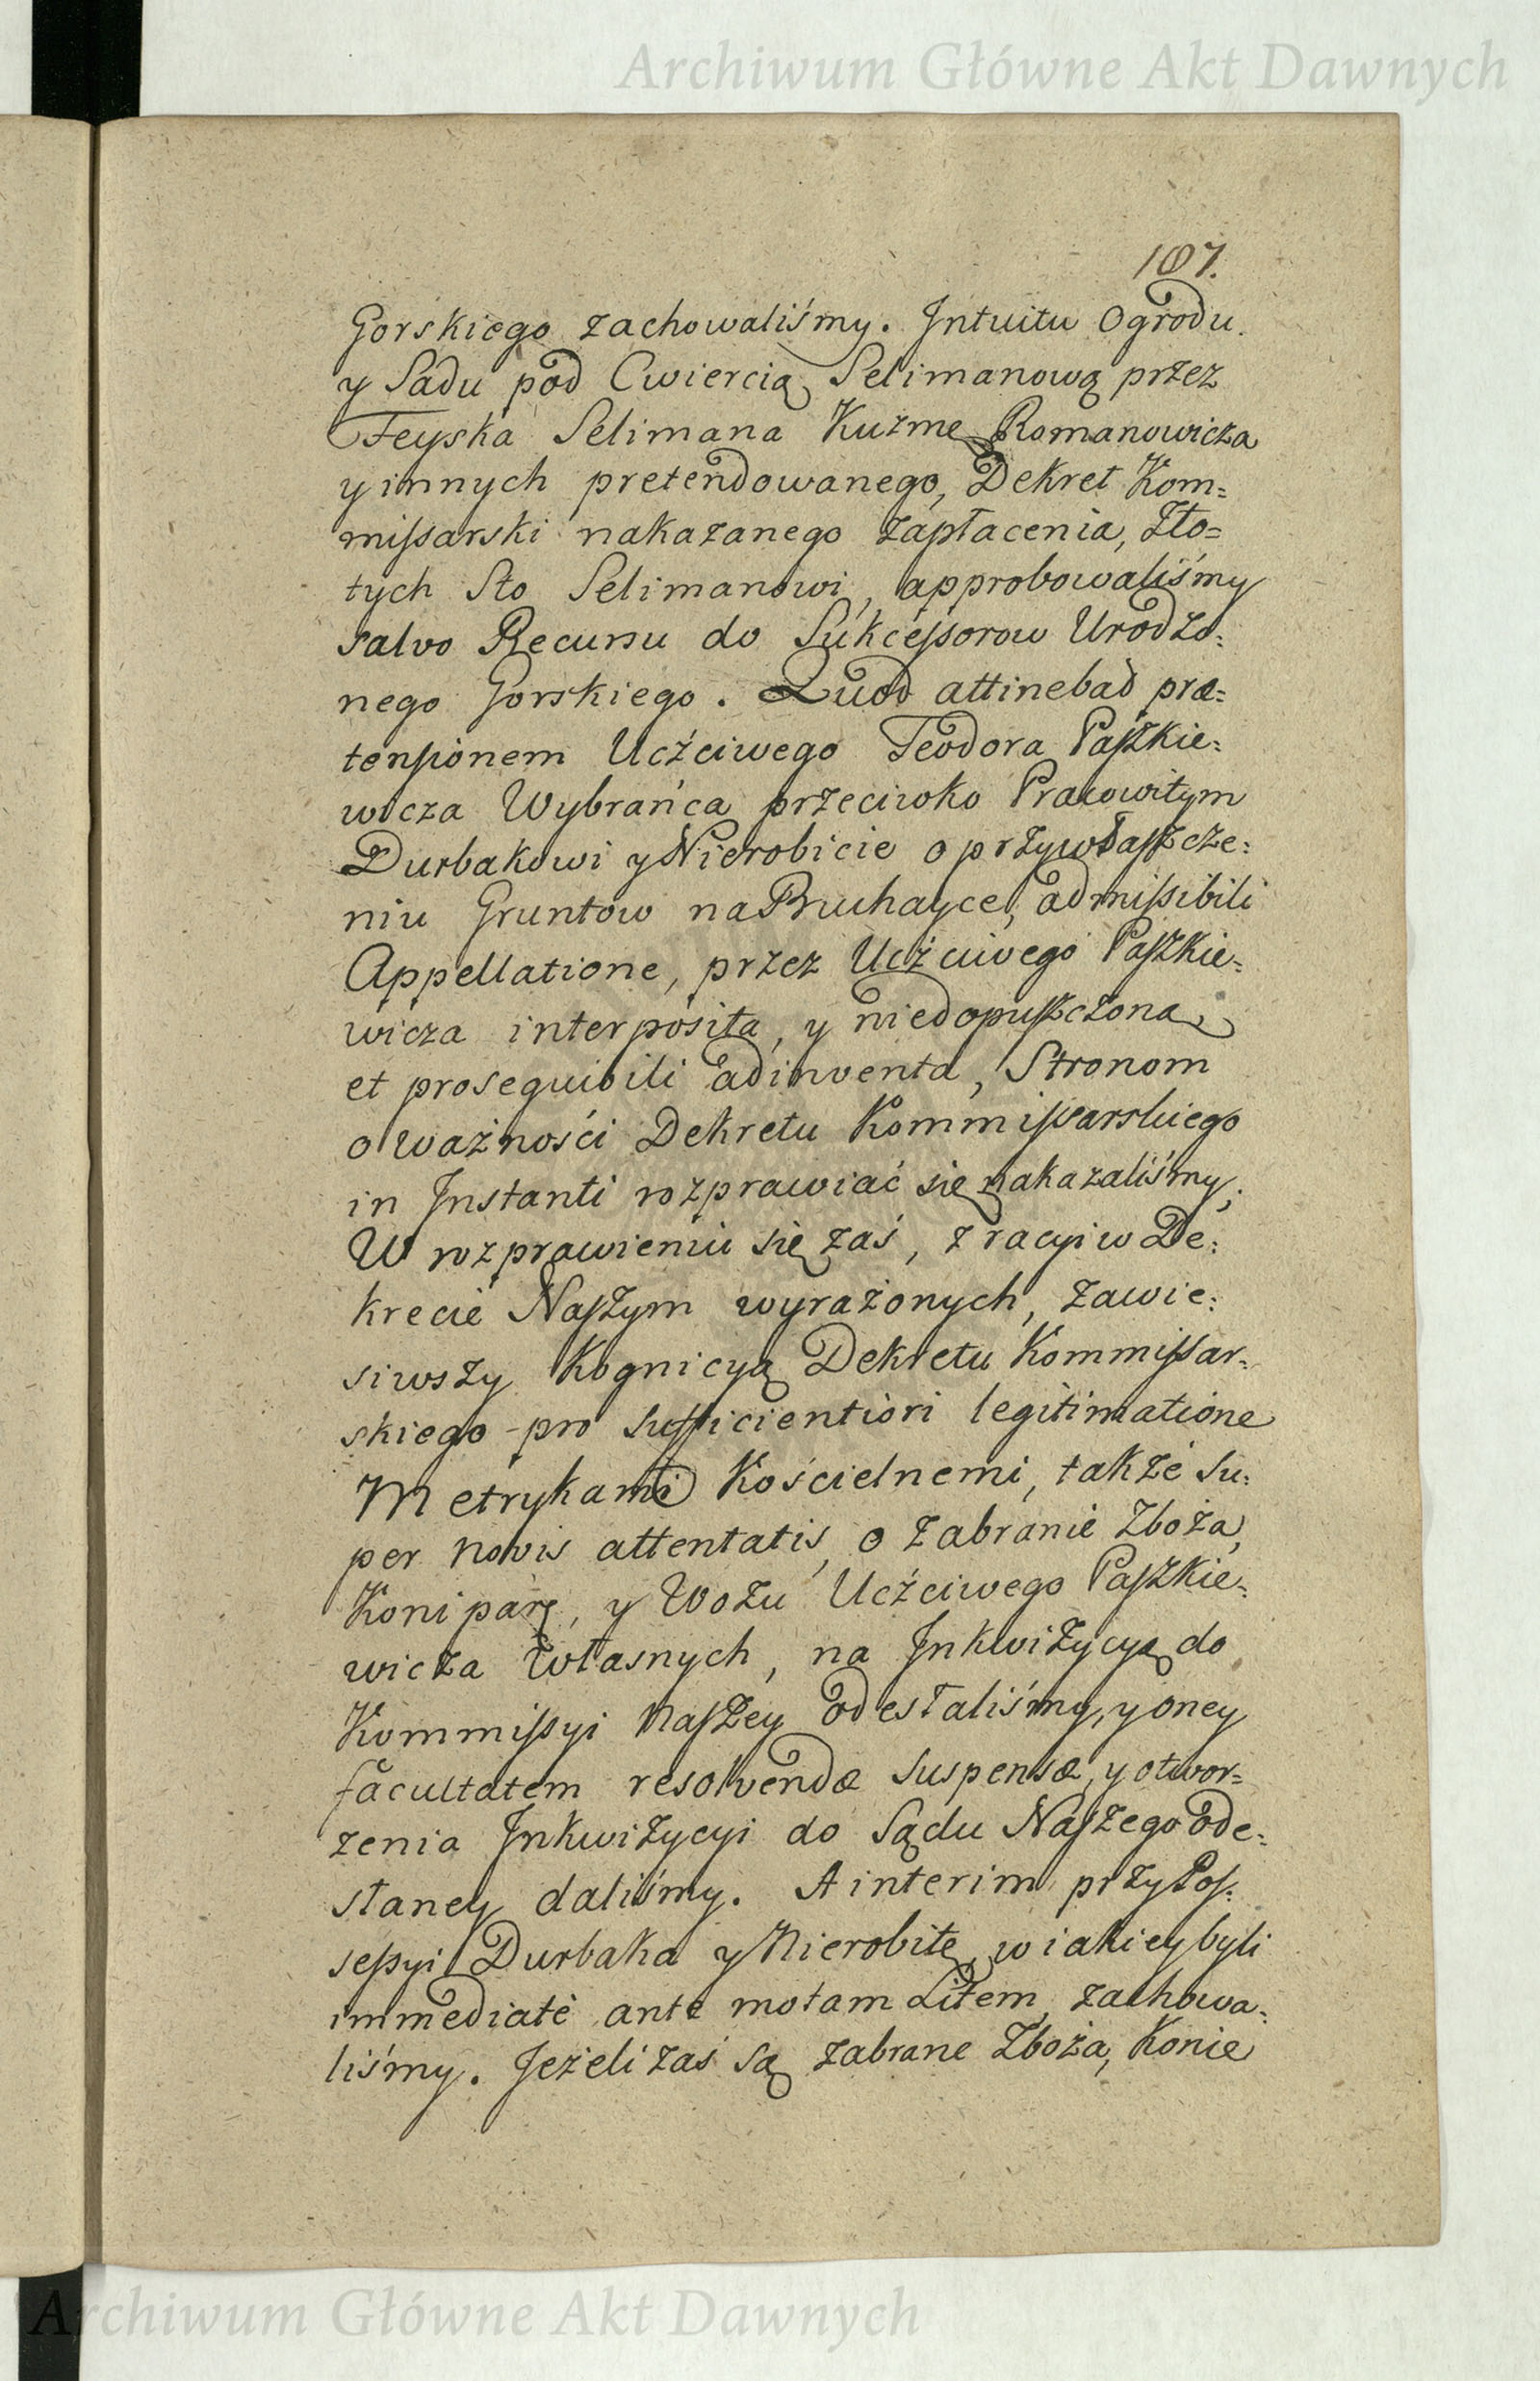 Archiwum Główne Akt Dawnych
107.
Gorskiego zachowaliśmy. Intuitu Ogrodu
y Sadu pod Cwiercią Selimanową przez
Feyska Selimana Kuzmę Romanowicza
y innych pretendowanego, Dekret Kom=
missarski nakazanego zapłacenia, Zło=
tych Sto Selimanowi, approbowaliśmy
salvo Recursu do Sukcessorow Urodzo=
nego Gorskiego. Quod attinebad præ=
tensionem Uczciwego Teodora Paszkie=
wicza Wybrańca przeciwko Pracowitym
Durbakowi y Nierobicie o przywłaszcze=
niu Gruntow na Bruhayce, admissibili
Appellatione, przez Uczciwego Paszkie=
wicza interposita, y niedopuszczoną
et prosequibili adinventa, Stronom
o ważności Dekretu Kommissarskiego
in Instanti rozprawiać się nakazaliśmy;
W rozprawieniu się zaś, z racyi w De=
krecie Naszym wyrażonych, zawie=
siwszy Kognicyą Dekretu Kommissar=
skiego pro sufficientiori legitimatione
Metrykami Kościelnemi, także su=
per novis attentatis, o zabranie Zboża,
Koni parę, y Wozu Uczciwego Paszkie=
wicza własnych, na Inkwizycyą do
Kommissyi Naszey odesłaliśmy, y oney
facultatem resolvendæ suspensæ, y otwor=
zenia Inkwizycyi do Sądu Naszego ode=
słaney daliśmy. A interim przy Pos=
sessyi Durbaka y Nierobitę, w iakiey byli
immediatè ante motam Litem, zachowa=
liśmy. Jeżeli zaś są zabrane Zboża, Konie
Archiwum Główne Akt Dawnych